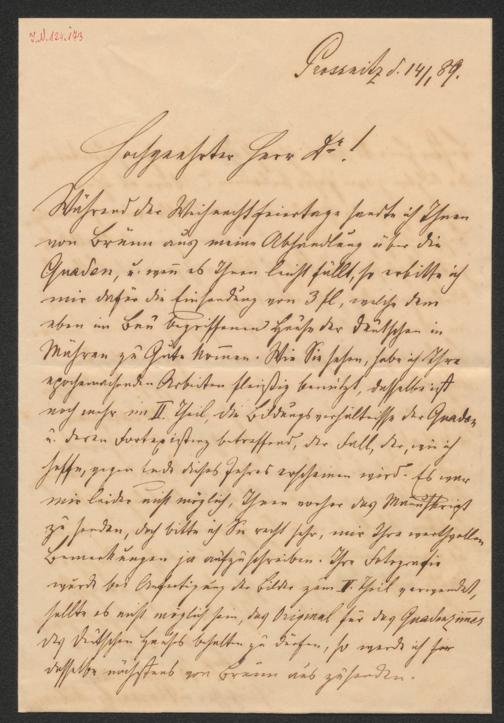 J.N. 124.173
Prossnitz d. 14/1 89.
Hochgeehrter Herr Dr!
Während der Weihnachtsfeiertage sandte ich Ihnen
von Brünn aus meine Abhandlung über die
Quaden, u. wenn es Ihnen leicht fällt, so erbitte ich
mir dafür die Einsendung von 3 fl, welche dem
eben im Bau begriffenen Hause der Deutschen in
Mähren zu Gute kommen. Wie Sie sehen, habe ich Ihre
epochemachenden Arbeiten fleißig benützt, dasselbe ist
noch mehr im II. Theil, die Bildungsverhältnisse der Quaden
u. deren Fortexistenz betreffend, der Fall, der, wie ich
hoffe, gegen Ende dieses Jahres erscheinen wird. Es war
mir leider nicht möglich, Ihnen vorher das Manuskript
zu senden, doch bitte ich Sie recht sehr, mir Ihre werthvollen
Bemerkungen ja aufzuschreiben. Ihre Fotografie
wurde bei Anfertigung der Bilder zum II. Theil verwendet,
sollte es nicht möglich sein, das Original für das Quadenzimmer
des Deutschen Hauses behalten zu dürfen, so werde ich
dasselbe nächstens von Brünn aus zusenden.